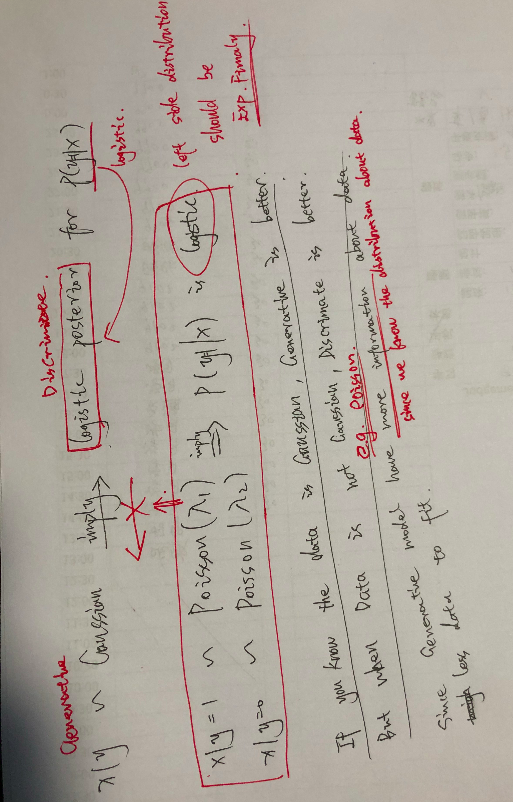 Generative
Discriminate.
x|y ~ Gaussian imply ⇒ logistic posterior for P(y|x)
logistic.
x|y=1 ~ Poisson(λ1) imply ⇒ P(y|x) is logistic
x|y=0 ~ Poisson(λ2)
left side distribution
should be
Exp. Fimaly.
If you know the data is Gaussian, Generative is better.
But when Data is not Gaussian, Discrimate is better.
e.g. Poisson.
Since Generative model have more information about data.
since we know the distribution about data.
less data to fit.